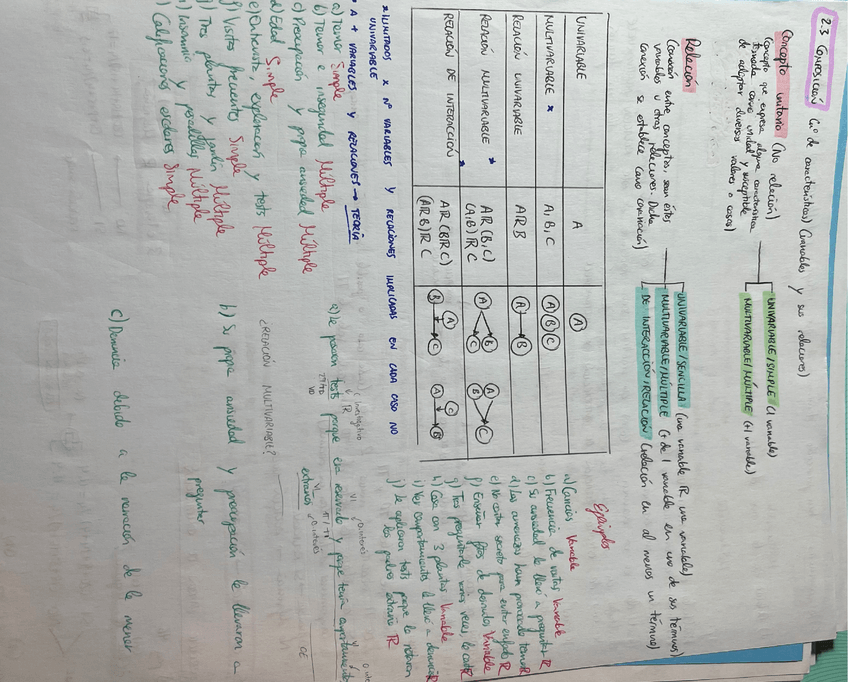 2.3 COMPOSICIÓN (nº de características) (variables y sus relaciones)
Concepto unitario (No relación)
(Concepto que expresa alguna característica
tomada como unidad y susceptible
de adoptar diversos valores o casos)
UNIVARIABLE/SIMPLE (1 variable)
MULTIVARIABLE/MÚLTIPLE (+1 variable)
Relación
(Conexión entre conceptos, sean éstos
variables u otras relaciones. Dicha
conexión se establece como conjunción)
UNIVARIABLE/SENCILLA (una variable IR una variable)
MULTIVARIABLE/MÚLTIPLE (+ de 1 variable en uno de sus términos)
DE INTERACCIÓN/RELACIÓN (relación en al menos un término)
UNIVARIABLE A A
MULTIVARIABLE * A, B, C A B C
RELACIÓN UNIVARIABLE A IR B A B
RELACIÓN MULTIVARIABLE * A IR (B, C) A B C
(A, B) IR C A B C
RELACIÓN DE INTERACCIÓN * A IR (B IR C) A B C
(A IR B) IR C A C B
* ILIMITADOS x Nº VARIABLES Y RELACIONES IMPLICADAS EN CADA CASO NO
UNIVARIABLE
* A + VARIABLES Y RELACIONES → TEORÍA
Ejemplos
a) Caricias Variable
b) Frecuencia de visitas Variable
c) Su ansiedad le llevó a preguntar IR
d) Las amenazas han provocado temor IR
e) No contar secreto para evitar enfado IR
f) Enseñar fotos de desnudos Variable
g) Tras preguntarle varias veces, lo contó IR
h) Casa con 3 plantas Variable
i) Ver comportamientos le llevó a denunciar IR
j) Le aplicaron tests porque lo notaron
los padres extraño IR
a) Temor Simple
b) Temor e inseguridad Múltiple
c) Preocupación y propia ansiedad Múltiple
d) Edad Simple
e) Entrevista, exploración y tests Múltiple
g) Visitas frecuentes Simple
j) Tres plantas y jardín Múltiple
Insomnio y pesadillas Múltiple
) Calificaciones escolares Simple
a) Le pasan tests porque era reservado y porque tenía comportamientos
extraños
¿RELACIÓN MULTIVARIABLE?
b) Su propia ansiedad y preocupación le llevaron a
preguntar
c) Denuncia debido a la narración de la menor